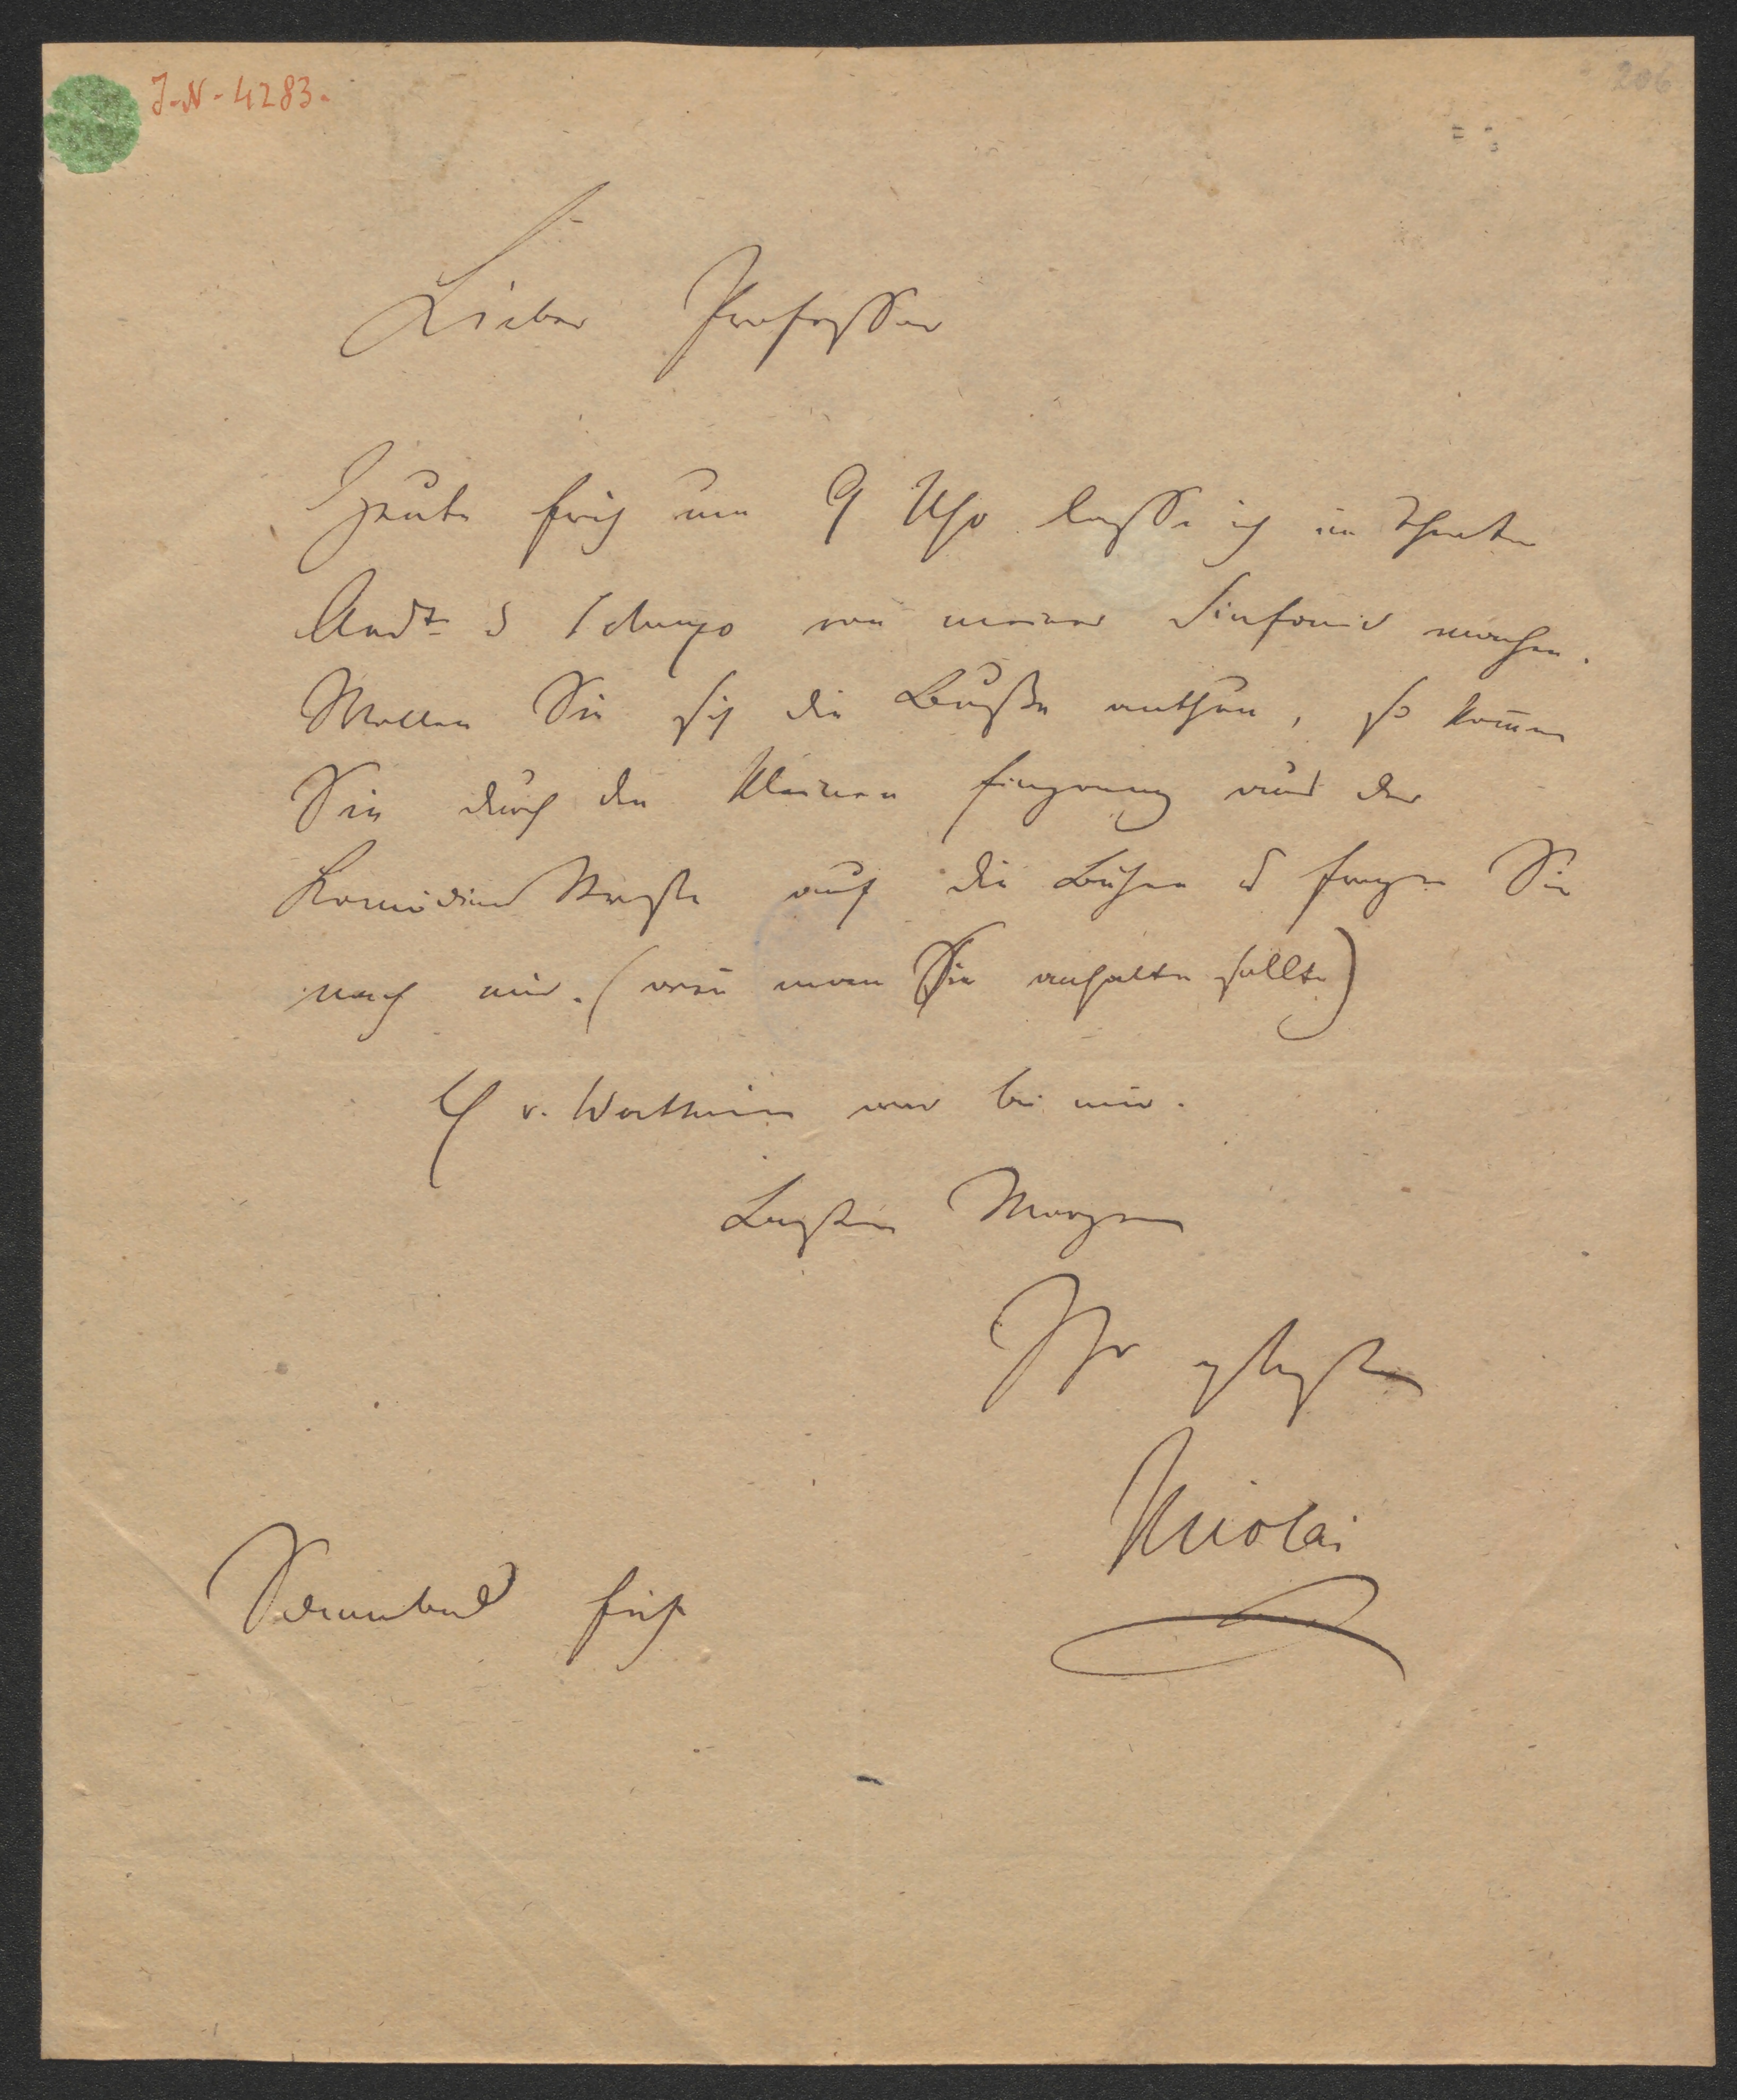 J.-N.-4283.
206
Lieber Professor
Heute früh um 9 Uhr lasse ich im Theater
Andte & Scherzo von meiner Sinfonie machen.
Wollen Sie sich die Buße anthun, so kom̄en
Sie durch den kleinen Eingang von der
Komödien Straße auf die Bühne & fragen Sie
nach mir. (wen̄ man Sie anhalten sollte)
H v. Wertheim war bei mir.
Besten Morgen
Ihr
Nicolai
Sonnabend früh